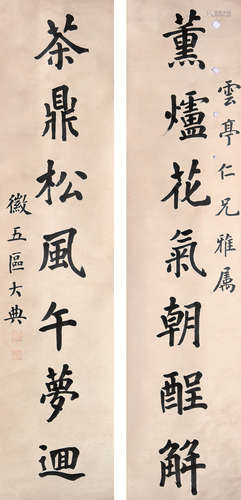 薰爐花氣朝酲解
雲亭仁兄雅属
茶鼎松風午夢迴
徽五區大典